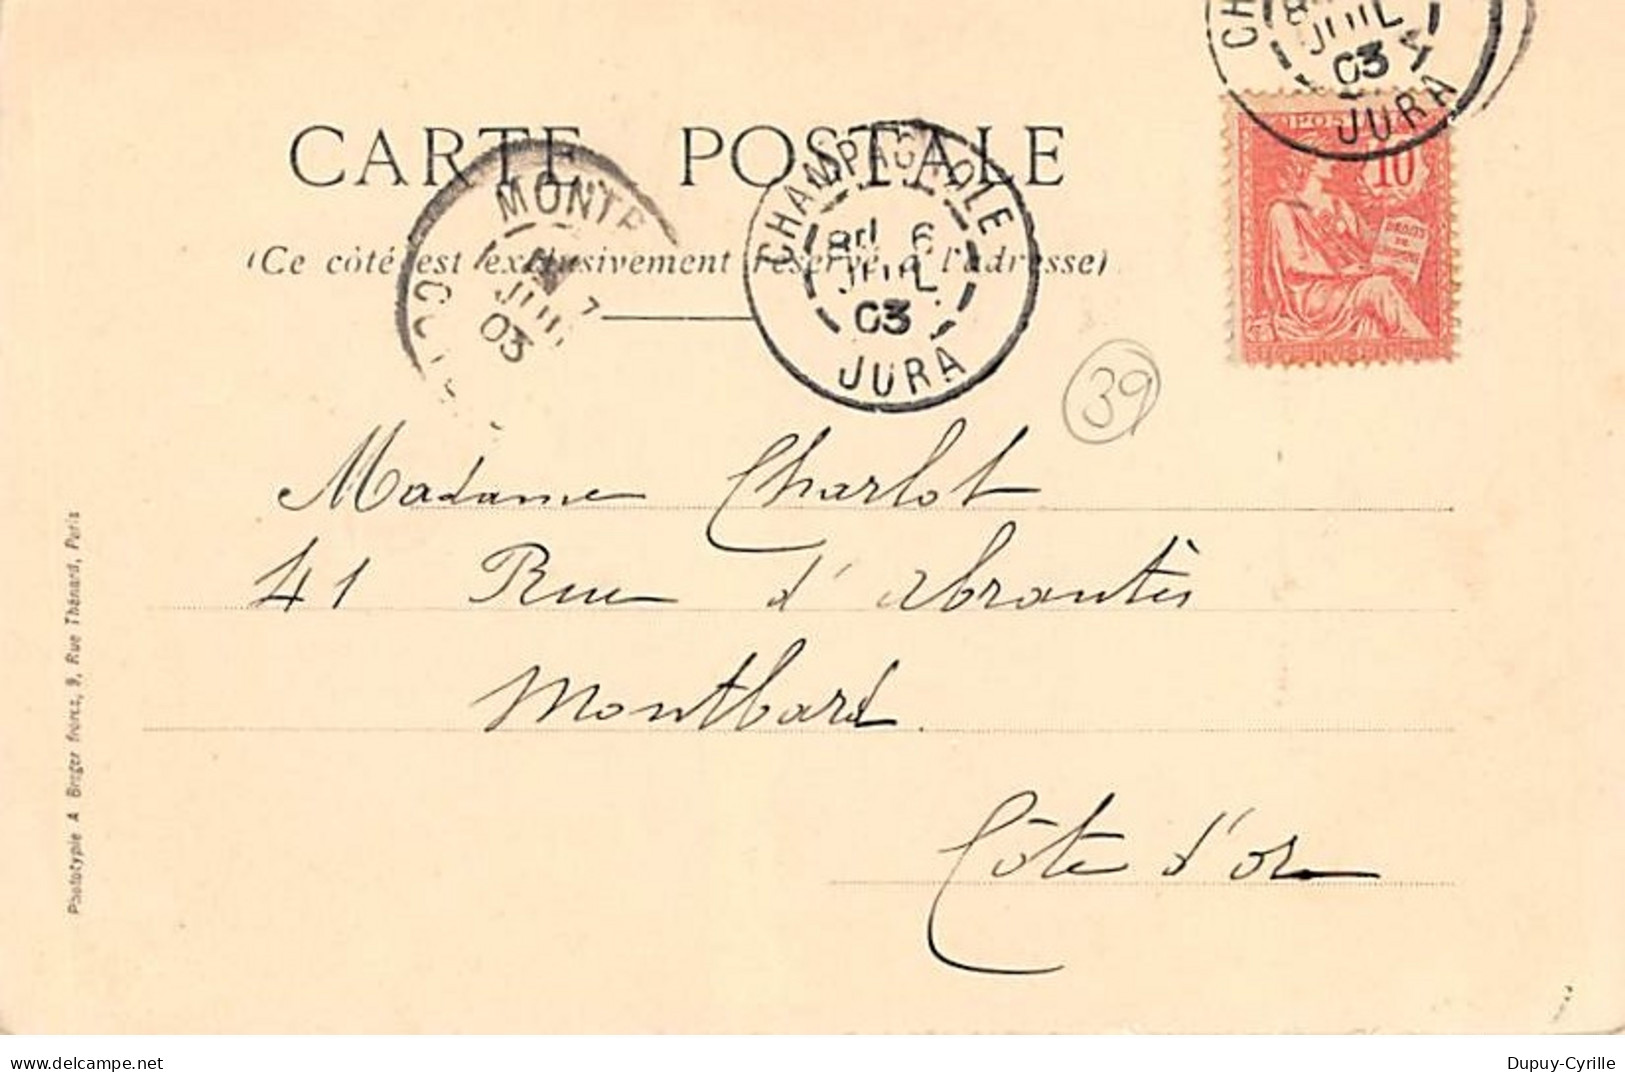 CARTE POSTALE
(Ce côté est exclusivement réservé à l'adresse)
MONTB
7
JUIL
03
CÔT
CHAMPAGNOLE
6
JUIL
03
JURA
CH
JUIL
03
JURA
POSTES
10
DROITS DE L'HOMME
39
Madame Charlot
41 Rue d'Abrantès
Montbard.
Côte d'or
Phototypie A Breger frères, 9, Rue Thénard, Paris
delcampe.net
Dupuy-Cyrille